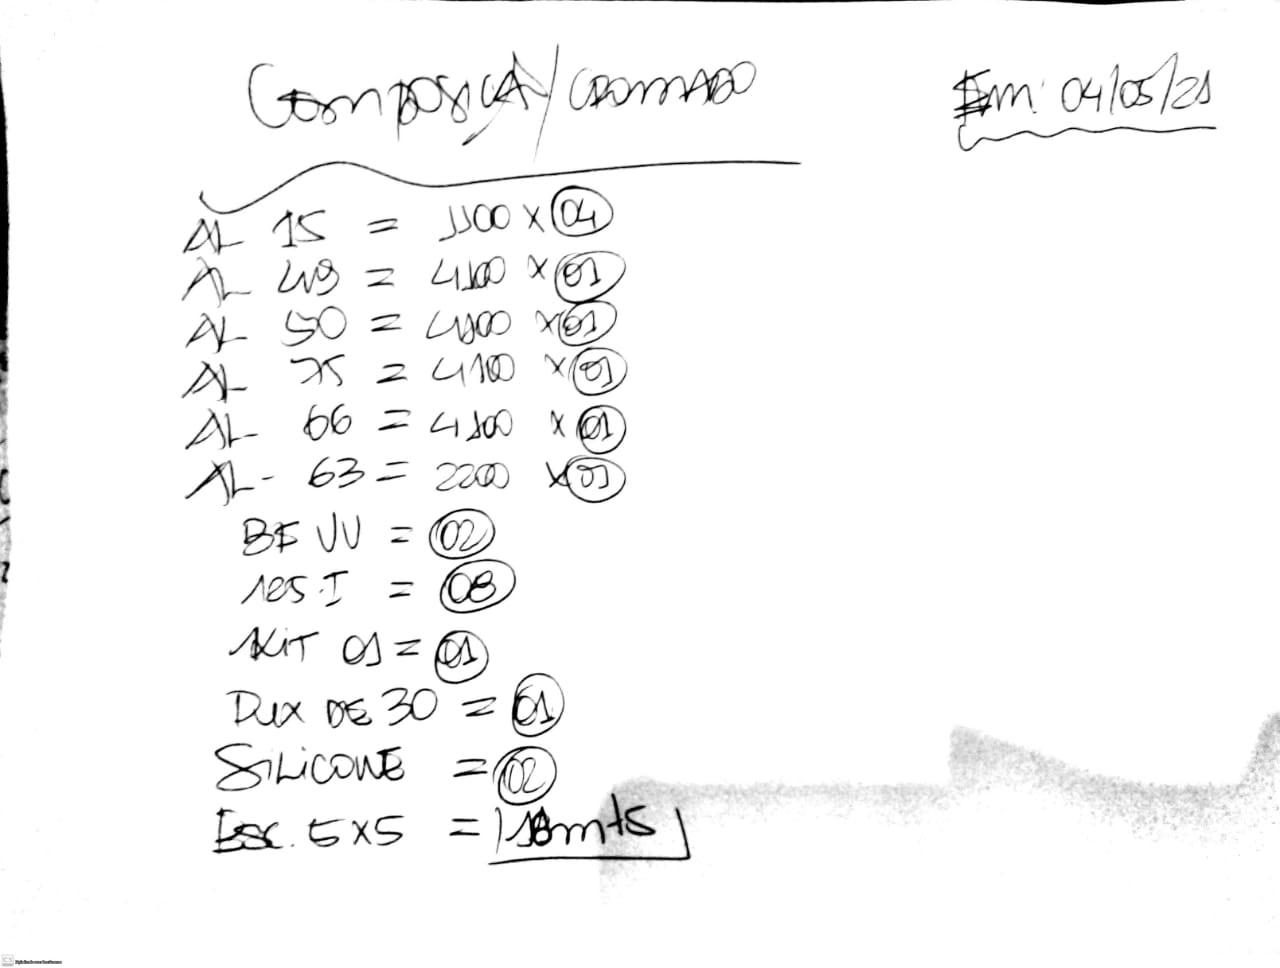 Composiçã/cromado
Em: 04/05/21
AL 15 = 1100 x 04
AL 49 = 4100 x 01
AL 50 = 4100 x 01
AL 75 = 4100 x 01
AL- 66 = 4100 x 01
AL- 63 = 2200 x 01
BF VV = 02
125.I = 08
KiT 01 = 01
Dux DE 30 = 01
SiLiCONE = 02
Esc. 5x5 = 18mts